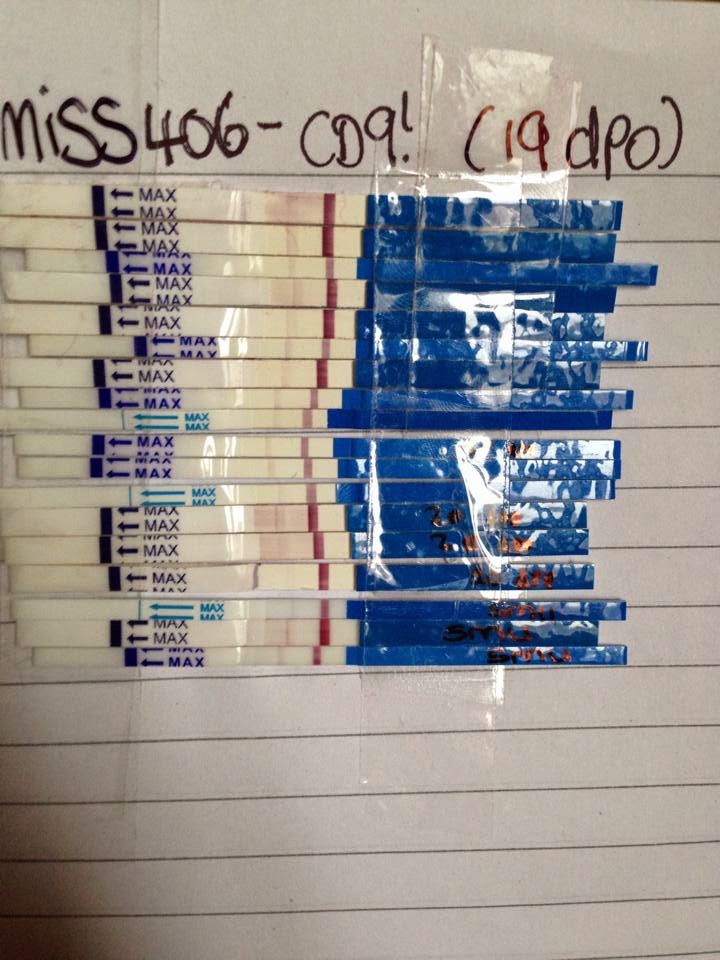 MISS406- CD9! (19 dpo)
MAX
MAX
MAX
MAX
MAX
MAX
MAX
MAX
MAX
MAX
MAX
MAX
MAX
MAX
MAX
MAX
MAX
MAX
MAX
MAX
MAX
MAX
MAX
MAX
MAX
MAX
MAX
MAX
MAX
MAX
MAX
MAX SMU
MAX
MAX SMU